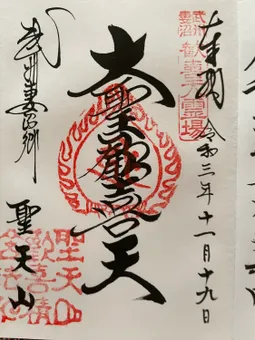 武州妻沼 歓喜天霊場
奉拝 令和三年十一月十九日
大聖歓喜天
武州妻沼郷 聖天山
聖天山